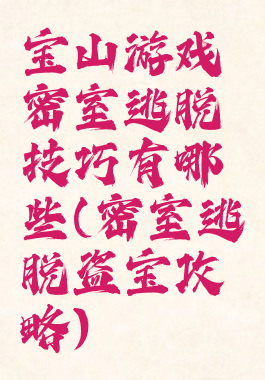 宝山游戏
密室逃脱
技巧有哪
些(密室逃
脱盗宝攻
略)